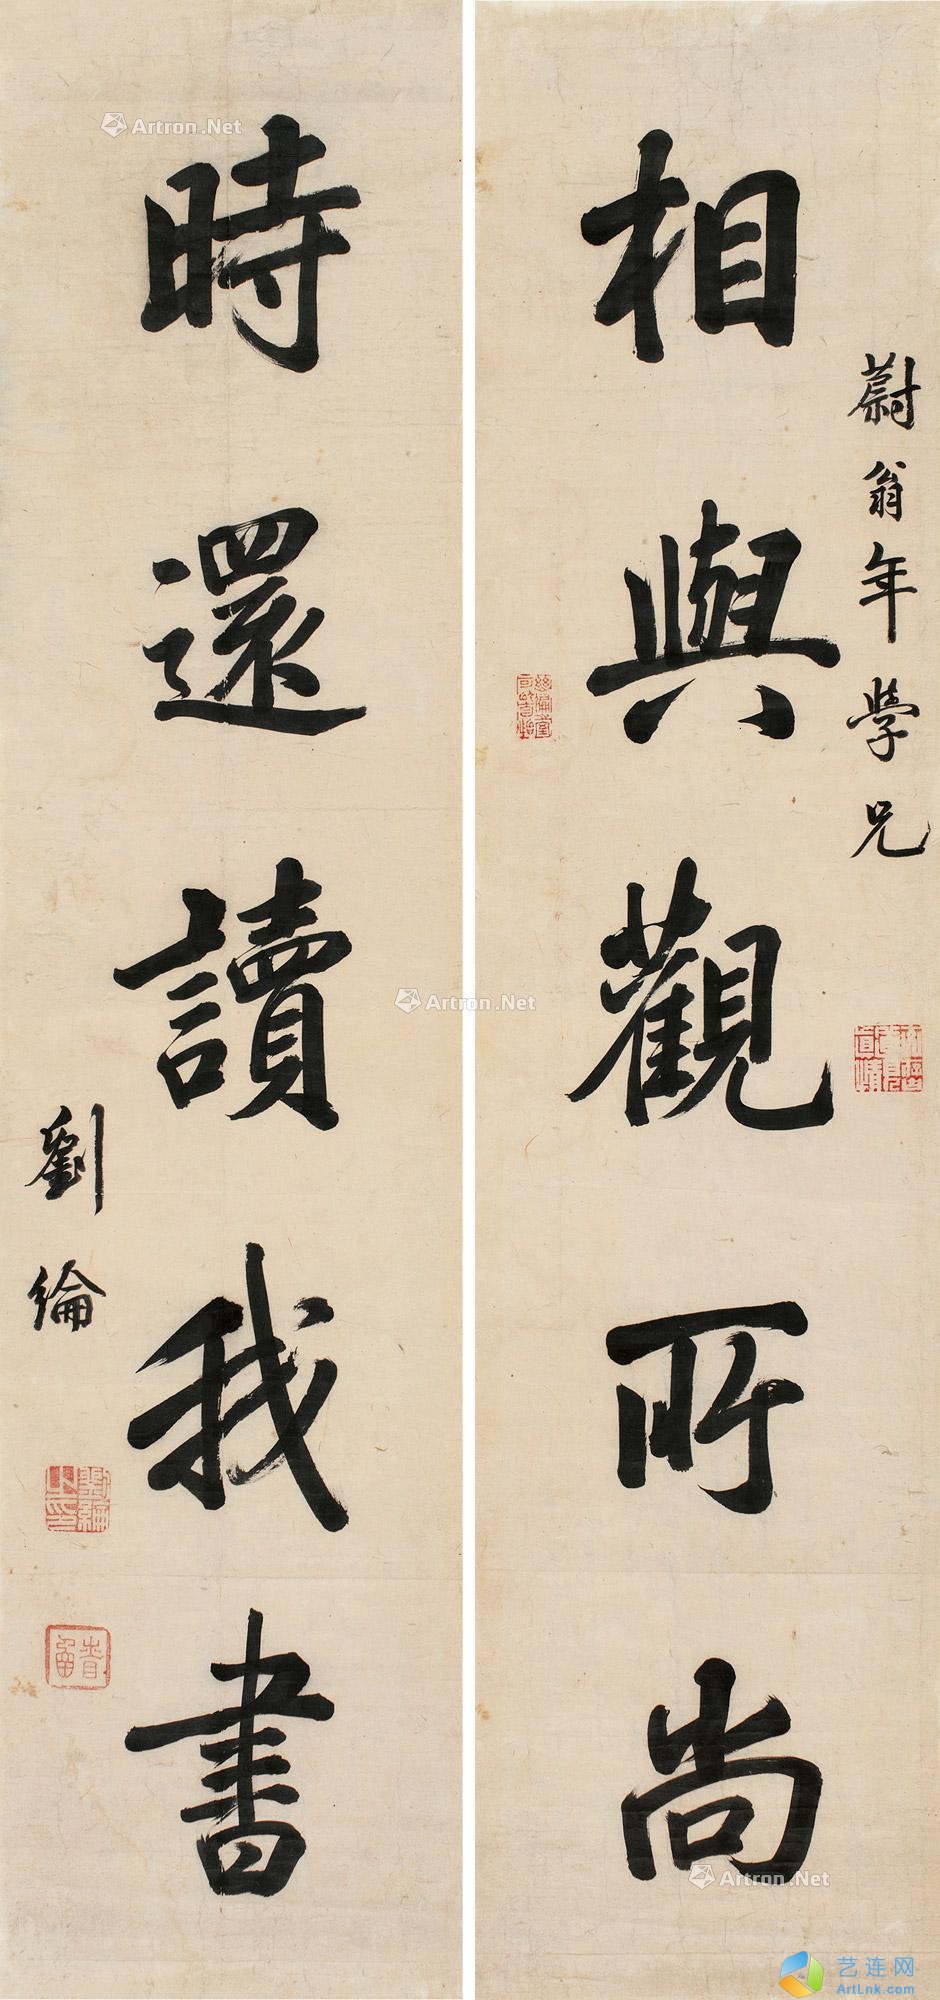 蔚翁年學兄
相與觀所尚
時還讀我書
劉綸
劉綸之印
Artron.Net
Artron.Net
Artron.Net
艺连网
ArtLnk.com